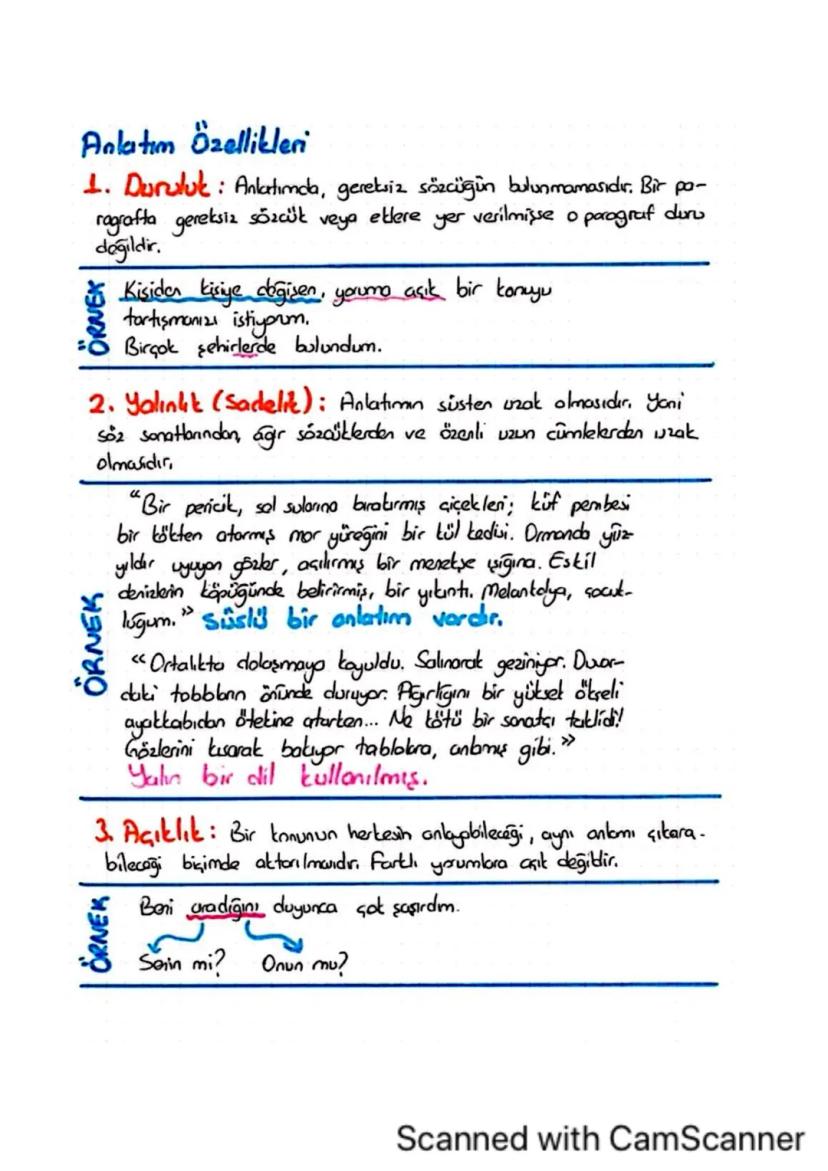 Anlatım Özellikleri
1. Duruluk: Anlatımda, gereksiz sözcüğün bulunmamasıdır. Bir pa-
ragrafta gereksiz sözcük veya eklere yer verilmişse o paragraf duru
değildir.
ÖRNEK
Kişiden kişiye değişen, yoruma açık bir konuyu
tartışmanızı istiyorum.
Birçok şehirlerde bulundum.
2. Yalınlık (Sadelik): Anlatımın süsten uzak olmasıdır. Yani
söz sanatlarından, ağır sözcüklerden ve özenli uzun cümlelerden uzak
olmasıdır.
ÖRNEK
"Bir pericik, sal sularına bırakırmış çiçekleri; küf pembesi
bir kökten atarmış mor yüreğini bir kül kedisi. Ormanda yüz-
yıldır uyuyan gözler, açılırmış bir menekşe ışığına. Eskil
denizlerin köpüğünde belirirmiş, bir yıkıntı. Melankolya, çocuk-
luğum." Süslü bir anlatım vardır.
"Ortalıkta dolaşmaya koyuldu. Salınarak geziniyor. Duvar-
daki tabloların önünde duruyor. Ağırlığını bir yüksek ökçeli
ayakkabıdan ötekine atarken... Ne kötü bir sanatçı taklidi!
Gözlerini kısarak bakıyor tablolara, anlamış gibi."
Yalın bir dil kullanılmış.
3. Açıklık: Bir konunun herkesin anlayabileceği, aynı anlamı çıkara-
bileceği biçimde aktarılmasıdır. Farklı yorumlara açık değildir.
ÖRNEK
Beni aradığını duyunca çok şaşırdım.
Senin mi? Onun mu?
Scanned with CamScanner